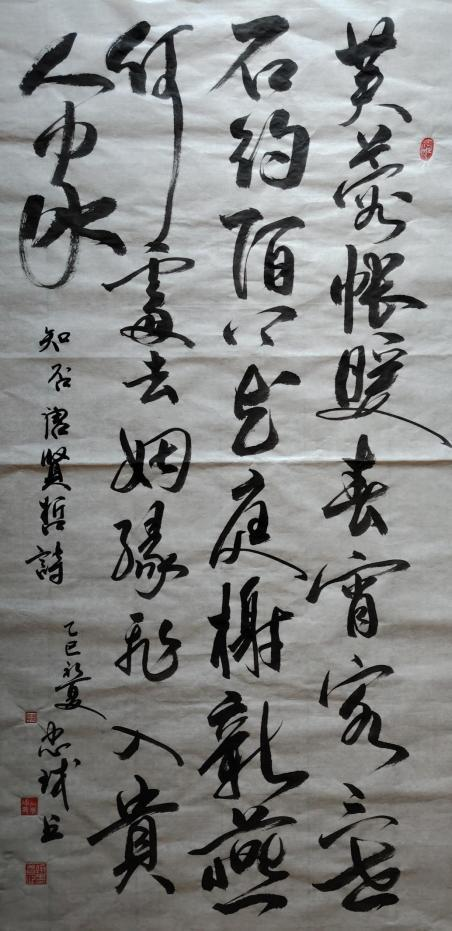 芙蓉帳暖春宵客三世
石約陌上花庭榭新燕
何處去姻緣飛入貴
人家
知否唐賢哲詩
乙巳初夏忠書